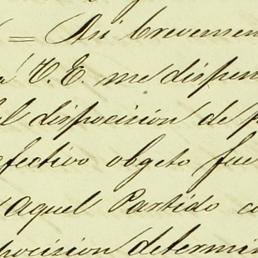 = Asi brevemen
á V. E. me dispen
l disposicion de
efectivo obgeto fue
aquel Partido co
posicion determin